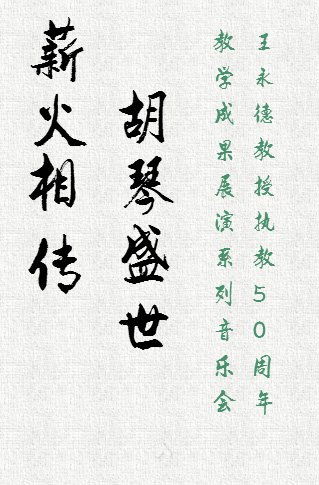 王永德教授执教50周年
教学成果展演系列音乐会
胡琴盛世
薪火相传